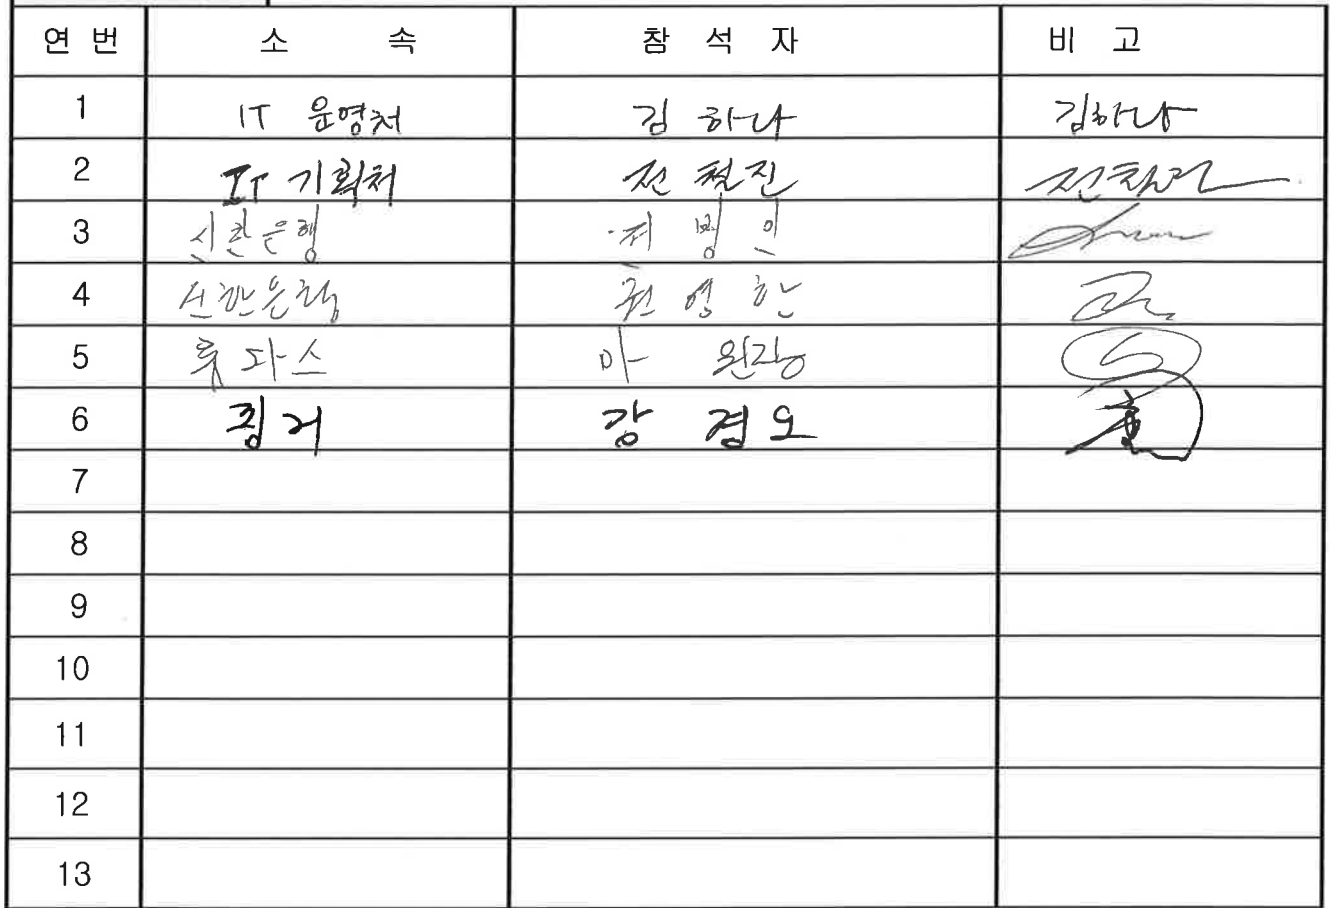 연 번 소 속 참 석 자 비 고
1 IT 운영처 김 하나 김하나
2 IT 기획처 전 철진
3 신한은행
4 신한은행 권 영 한
5 마 완강
6 링거 강 경 오
7
8
9
10
11
12
13